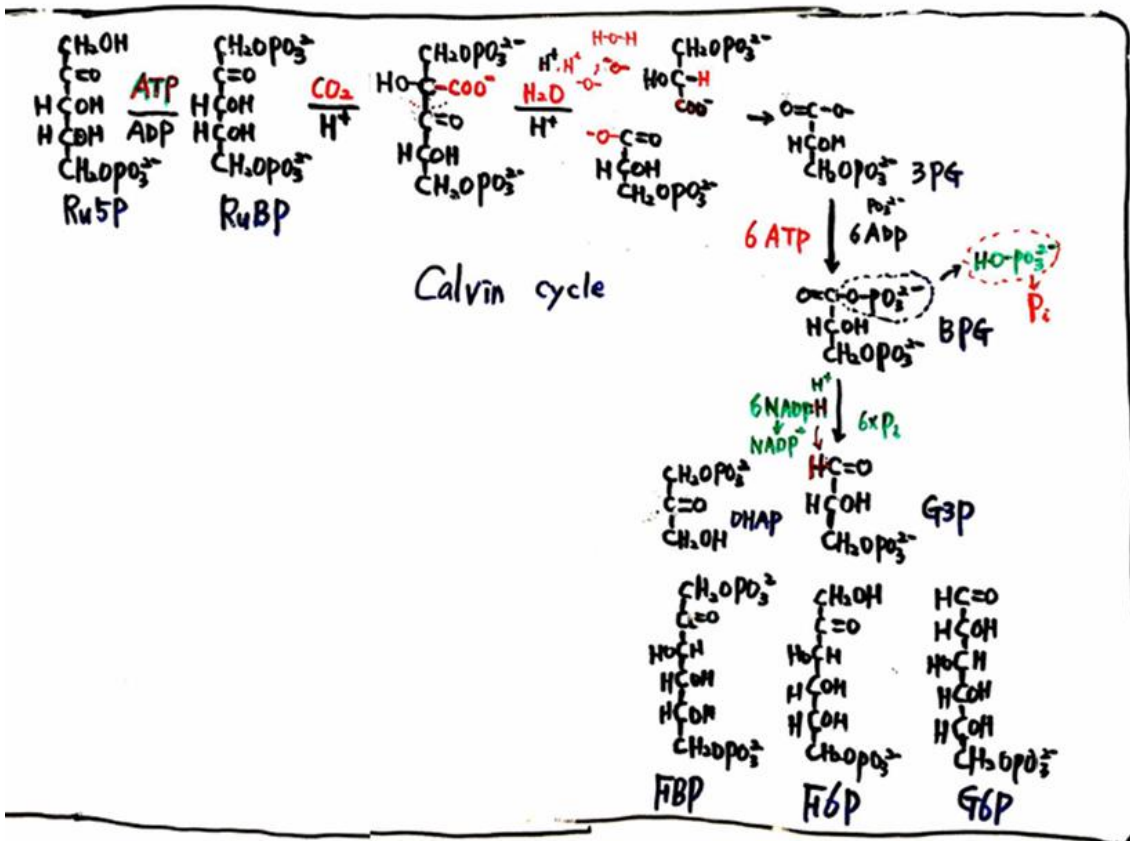 CH₂OH
C=O
HCOH
HCOH
CH₂OPO₃²⁻
Ru5P
ATP
ADP
CH₂OPO₃²⁻
C=O
HCOH
HCOH
CH₂OPO₃²⁻
RuBP
CO₂
H⁺
CH₂OPO₃²⁻
HO-C-COO⁻
C=O
HCOH
CH₂OPO₃²⁻
H-O-H
H⁺ H⁺ -O-
-O-
H₂O
H⁺
CH₂OPO₃²⁻
HO C-H
COO⁻
-O-C=O
HCOH
CH₂OPO₃²⁻
O=C-O-
HCOH
CH₂OPO₃²⁻ 3PG
PO₃²⁻
6 ATP 6 ADP
HO-PO₃²⁻
Pi
Calvin cycle
O=C-O-PO₃²⁻
HCOH
CH₂OPO₃²⁻
BPG
H⁺
6NADPH
NADP⁺
6×Pi
HC=O
HCOH
CH₂OPO₃²⁻
G3P
CH₂OPO₃²
C=O
CH₂OH
DHAP
CH₂OPO₃²
C=O
HOCH
HCOH
HCOH
CH₂OPO₃²⁻
FBP
CH₂OH
C=O
HOCH
HCOH
HCOH
CH₂OPO₃²⁻
F6P
HC=O
HCOH
HOCH
HCOH
HCOH
CH₂OPO₃²⁻
G6P